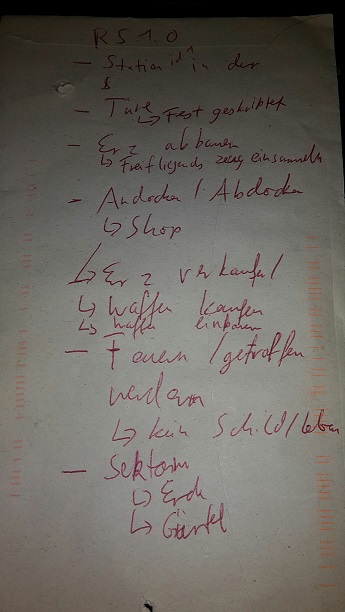 RS 1.0
- Station in der
- Türe
↳ Fest geskriptet
- Erz abbauen
↳ Freifliegends zeug einsammeln
- Andocken / Abdocken
↳ Shop
↳ Erz verkaufen
↳ Waffen kaufen
↳ Waffen einbauen
- Feuern / getroffen
werden
↳ kein Schild / leben
- Sektoren
↳ Erde
↳ Gürtel